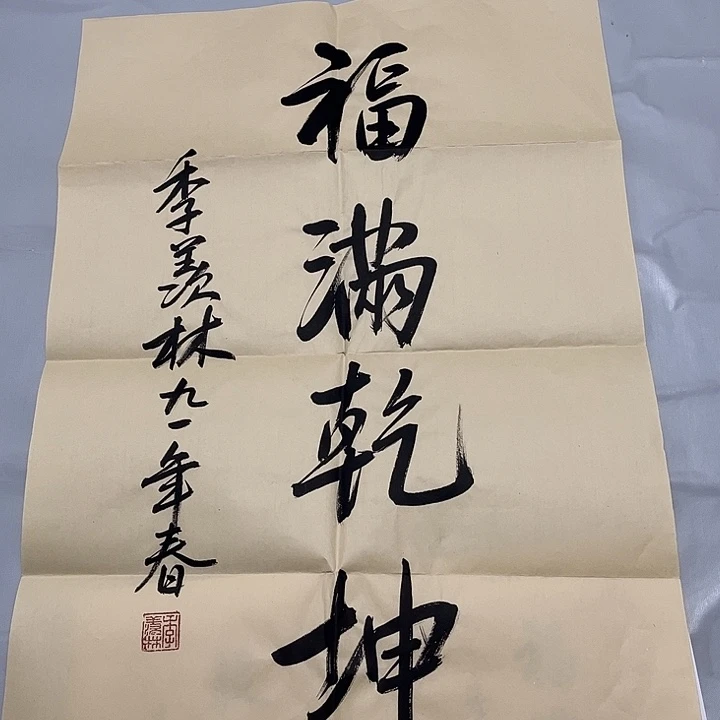 福满乾坤
季羡林九一年春
季羡林